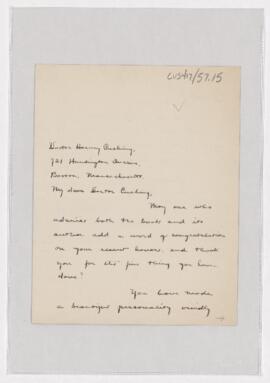 CUS417/57.15
Doctor Harvey Cushing,
721 Huntington Avenue,
Boston, Massachusetts.
My dear Doctor Cushing,
May one who
admires both the book and its
author add a word of congratulation
on your recent honor, and thank
you for the fine thing you have
done?
You have made
a personality vividly